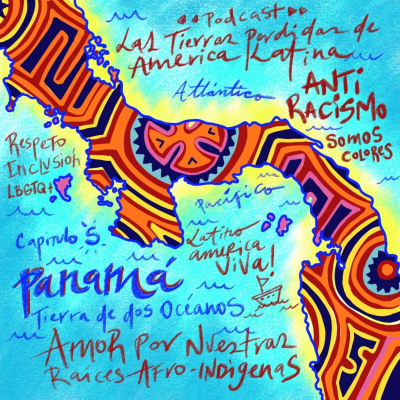 ◁◁Podcast▷▷
Las Tierras Perdidas de
America Latina
Atlántico
ANTI
RACISMO
SOMOS
COLORES
Respeto
Inclusión
LBGTQ+
Pacífico
Capítulo 5.
Panamá
Tierra de dos Océanos
Latino
america
Viva!
Amor por Nuestras
Raíces Afro-Indígenas